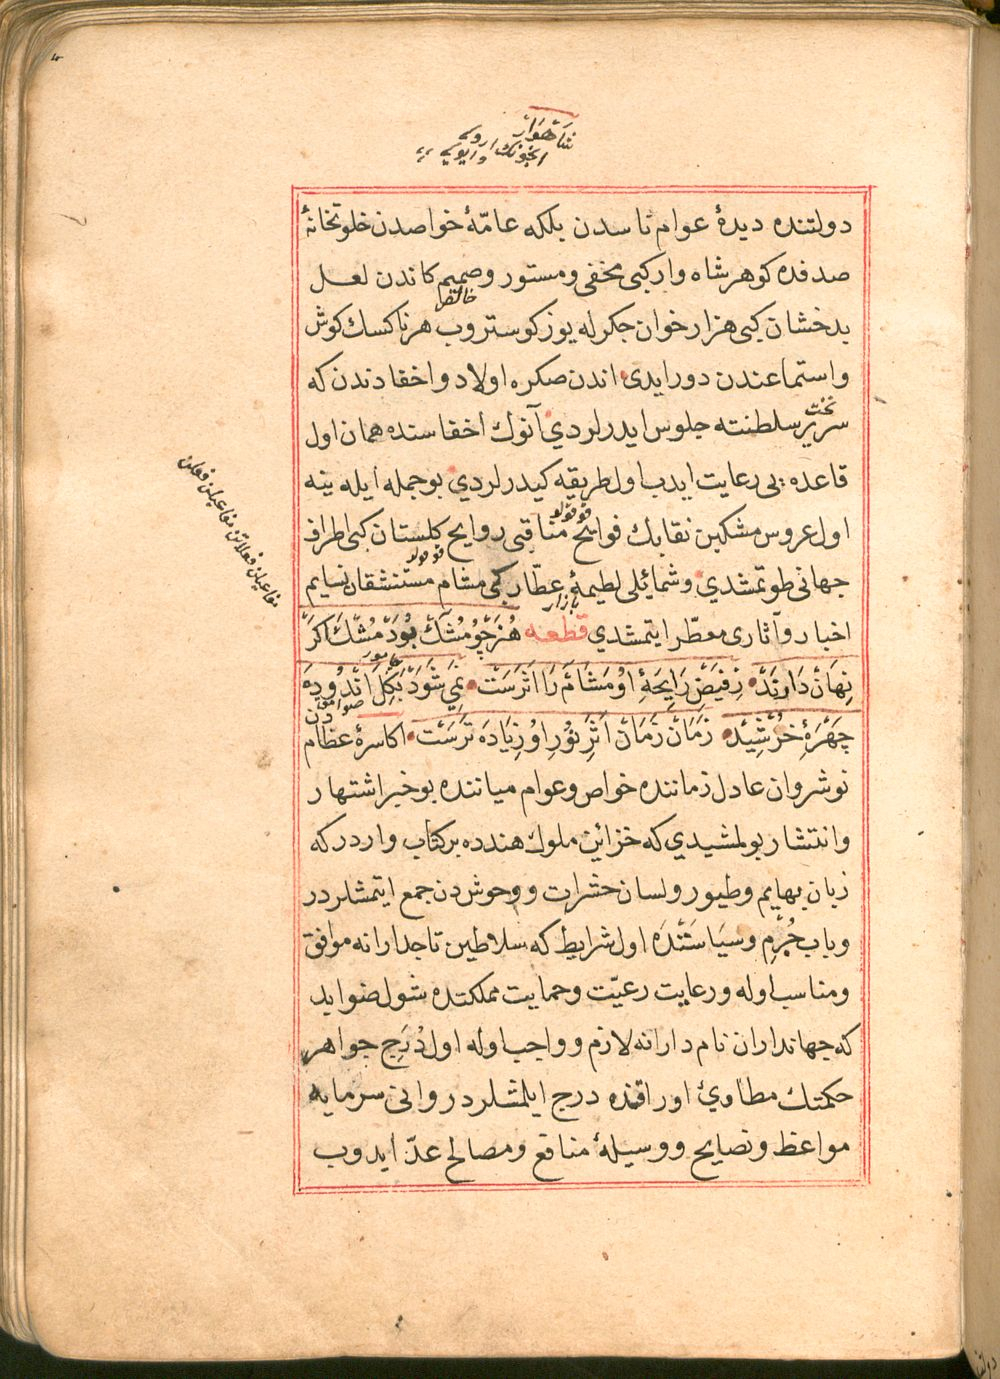 شاهوار
انجونك ايوسى
دولتنده ديدۀ عوام ناسدن بلكه عامّۀ خواصدن خلوتخانۀ
صدفده كوهر شاهوار كبى مخفى ومستور وصميم كاندن لعل
خالص
بدخشان كبى هزار خوان جكرله يوز كوستروب هر ناكسك كوش
واستماعندن دور ايدى اندن صكره اولاد واحفادندن كه
تخت
سرير سلطنته جلوس ايدرلردي آنوك اخفاسنده همان اول
قاعده يى رعايت ايدب اول طريقه كيدرلردي بو جمله ايله ينه
اول عروس مشكين نقابك فوايح مناقبى روايح كلستان كبى اطراف
جهانى طوتمشدي وشمائلى لطيمۀ عطّار كبى مشام مستنشقان نسايم
بازار
اخبار وآثارى معطّر ايتمشدي قطعه هُنَر چُو مُشك بُوَد مُشك اكَر
نِهَان دَارَند زِفَيضِ رَايِحَۀِ اُو مَشَام رَا اَثَرَست نَمِي شَوَد بَكِل اَندُودَه
چَهرَۀِ خُرشِيد زَمَان زَمَان اَثَرِ نُورِ اُو زِيَادَه تَرَست اكاسرۀ عظامدن
نوشروان عادل زماننده خواص وعوام مياننده بو خبر اشتهار
وانتشار بولمشيدي كه خزائن ملوك هندده بر كتاب واردر كه
زبان بهايم وطيور ولسان حشرات ووحوشدن جمع ايتمشلردر
وباب جُرم وسيَاسَتدَه اول شرايط كه سلاطين تاجدارانه موافق
ومناسب اوله ورعايت رعيّت وحمايت مملكتده شول ضوابط
كه جهانداران نامدارانه لازم وواجب اوله اول دُرج جواهر
حكمتك مطاوئ اوراقنده درج ايلمشلردر وانى سرمايه
مواعظ ونصايح ووسيلۀ منافع ومصالح عدّ ايدوب
مفاعيلن فعلاتن مفاعيلن فعلن